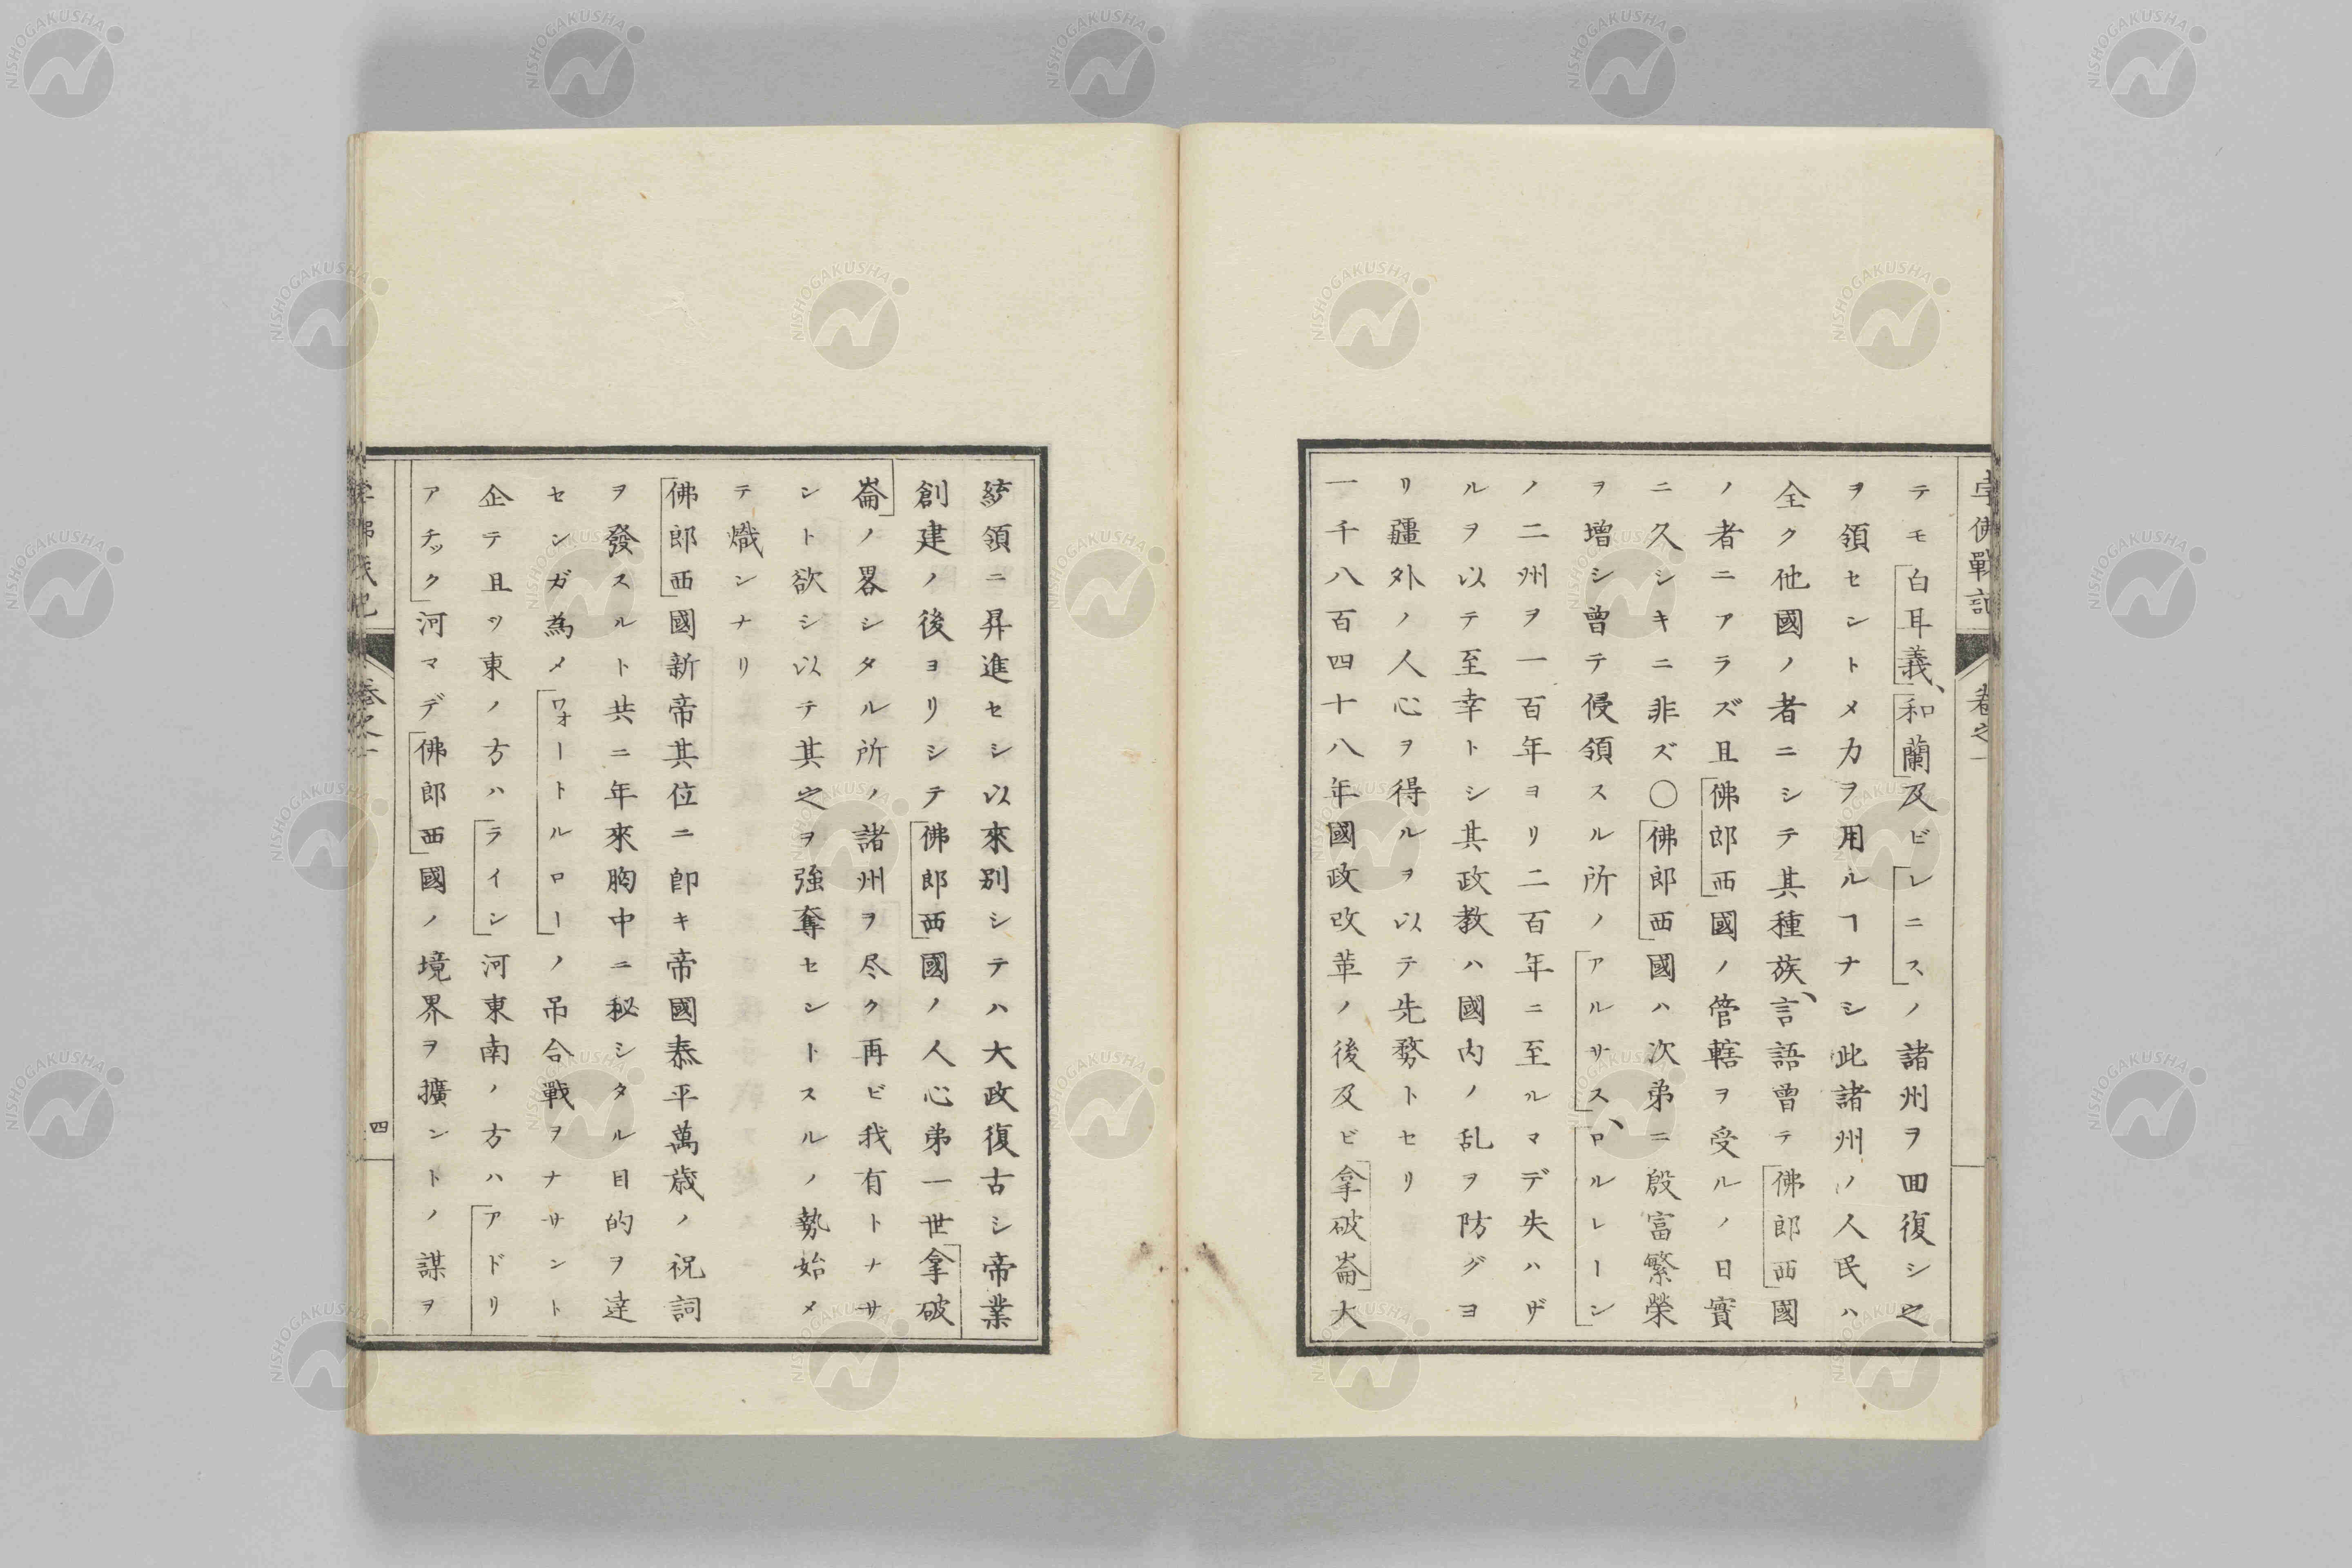 孛佛戰記
卷之一
テモ白耳義、和蘭及ビレニスノ諸州ヲ回復シ之
ヲ領セントメ力ヲ用ルヿナシ此諸州ノ人民ハ
全ク他國ノ者ニシテ其種族、言語曽テ佛郎西國
ノ者ニアラズ且佛郎西國ノ管轄ヲ受ルノ日實
ニ久シキニ非ズ〇佛郎西國ハ次弟ニ殷富繁榮
ヲ増シ曽テ侵領スル所ノアルサス、ロルレーン
ノ二州ヲ一百年ヨリ二百年ニ至ルマデ失ハザ
ルヲ以テ至幸トシ其政教ハ國内ノ乱ヲ防グヨ
リ疆外ノ人心ヲ得ルヲ以テ先務トセリ
一千八百四十八年國政改革ノ後及ビ拿破崙大
統領ニ昇進セシ以來別シテハ大政復古シ帝業
創建ノ後ヨリシテ佛郎西國ノ人心弟一世拿破
崙ノ畧シタル所ノ諸州ヲ尽ク再ビ我有トナサ
ント欲シ以テ其之ヲ強奪セントスルノ勢始メ
テ熾シナリ
佛郎西國新帝其位ニ即キ帝國泰平萬歳ノ祝詞
ヲ發スルト共ニ年來胸中ニ秘シタル目的ヲ達
センガ為メワォートルローノ吊合戰ヲナサント
企テ且ツ東ノ方ハライン河東南ノ方ハアドリ
アチック河マデ佛郎西國ノ境界ヲ擴ントノ謀ヲ
四